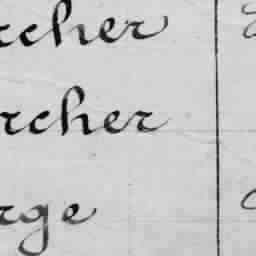 rcher
rcher
rge